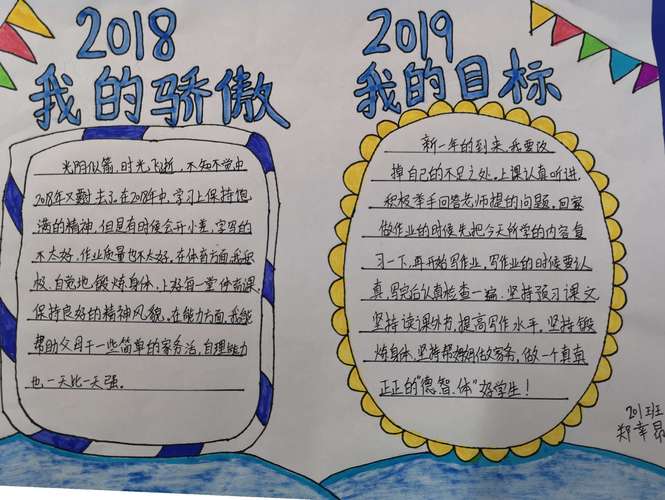 2018
我的骄傲
光阴似箭,时光飞逝,不知不觉中
2018年又过去了。在2018年中,学习上保持饱
满的精神,但是有时候会开小差,字写的
不太好,作业质量也不太好。在体育方面,我积
极、自觉地锻炼身体,上好每一堂体育课,
保持良好的精神风貌。在能力方面,我能
帮助父母干一些简单的家务活,自理能力
也一天比一天强。
2019
我的目标
新一年的到来,我要改
掉自己的不足之处。上课认真听讲,
积极举手回答老师提的问题,回家
做作业的时候先把今天所学的内容复
习一下,再开始写作业,写作业的时候要认
真,写完后认真检查一遍,坚持预习课文
坚持读课外书,提高写作水平。坚持锻
炼身体,坚持帮妈妈做家务,做一个真真
正正的“德、智、体”好学生!
201班
郑幸